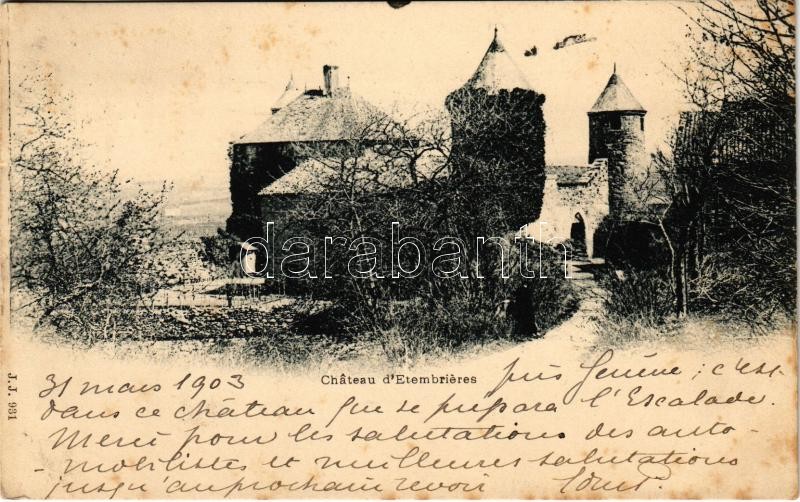 darabanth
Château d'Etembrières
près Genève ; c'est
31 mars 1903
dans ce château que se prépara l'Escalade.
Merci pour les salutations des auto-
-mobilistes et meilleures salutations
jusqu'au prochain revoir
J.J. 931